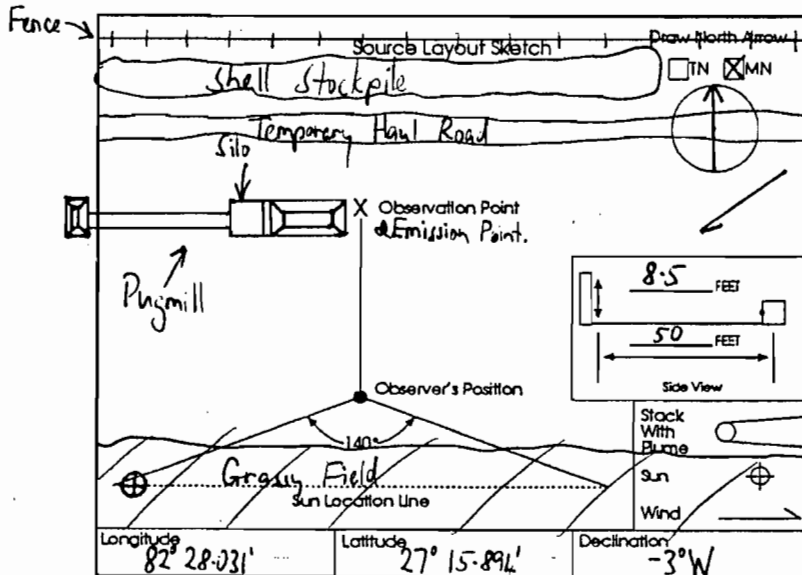 Fence
Source Layout Sketch
Draw North Arrow
TN MN
Shell Stockpile
Temporary Haul Road
Silo
X Observation Point
& Emission Point.
Pugmill
8.5 FEET
50 FEET
Side View
Observer's Position
140°
Stack
With
Plume
Grassy Field
Sun
Sun Location Line
Wind
Longitude
82° 28.031'
Latitude
27° 15.894'
Declination
-3°W